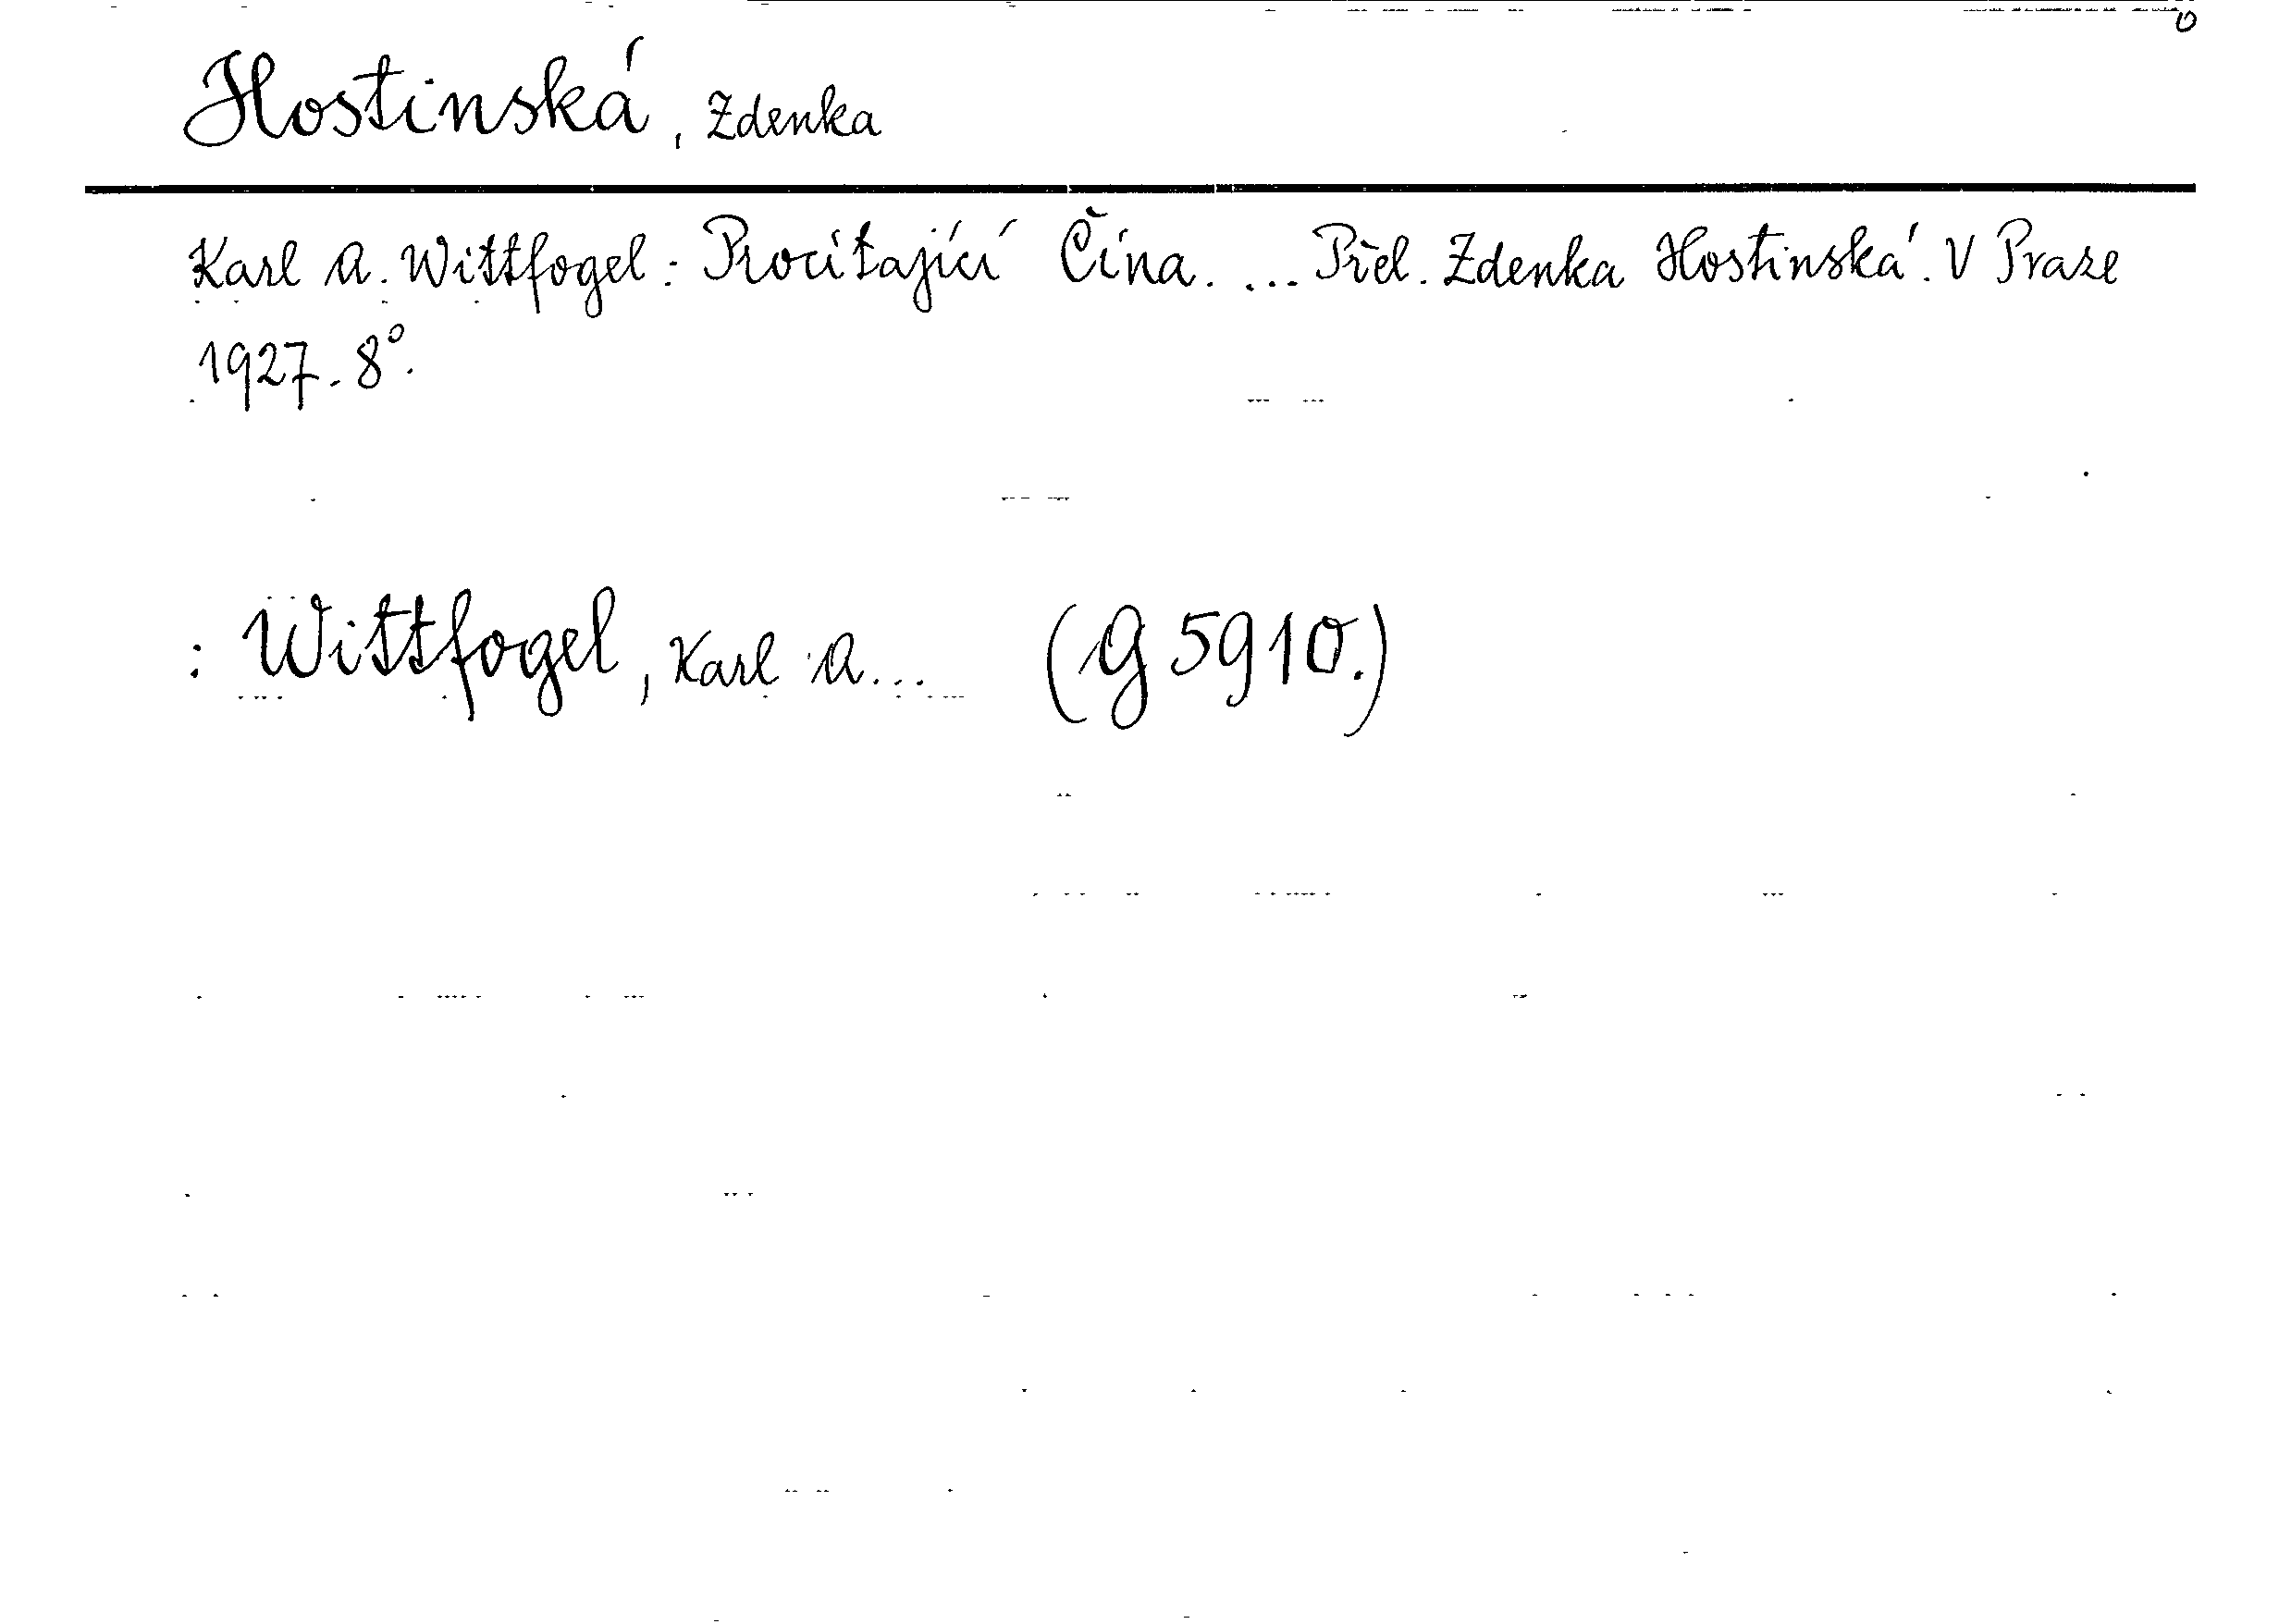 Hostinská, Zdenka
Karl A. Wittfogel: Procítající Čína. ... Přel. Zdenka Hostinská. V Praze
1927. 8°.
: Wittfogel, Karl A... (G 5910.)